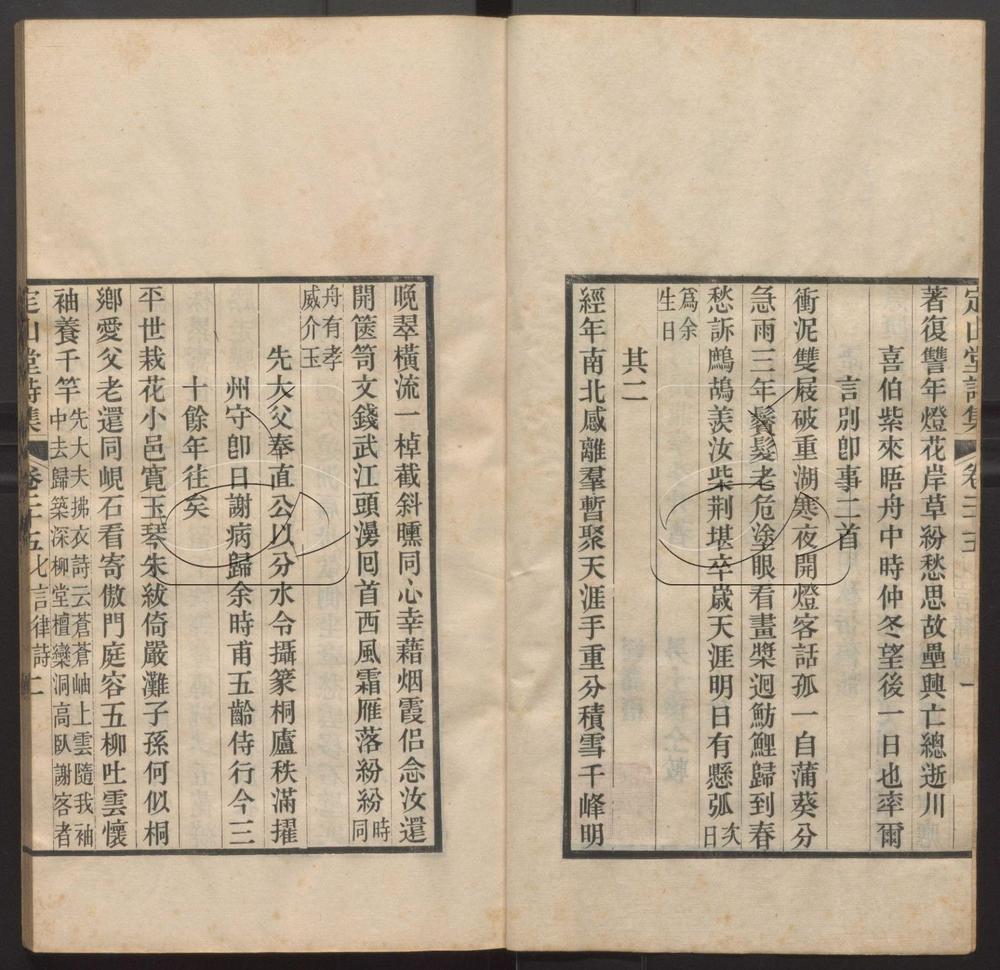 定山堂詩集 卷二十五 七言律詩 一
著復讐年燈花岸草紛愁思故壘興亡總逝川
喜伯紫來晤舟中時仲冬望後一日也率爾
言別卽事二首
衝泥雙屐破重湖寒夜開燈客話孤一自蒲葵分
急雨三年鬢髮老危塗眼看畫槳迴魴鯉歸到春
愁訴鷓鴣羨汝柴荆堪卒歲天涯明日有懸弧次日
爲余生日
其二
經年南北感離羣暫聚天涯手重分積雪千峰明
晚翠橫流一棹截斜曛同心幸藉烟霞侶念汝還
開篋笥文錢武江頭漫囘首西風霜雁落紛紛時同
舟有孝威介玉
先大父奉直公以分水令攝篆桐廬秩滿擢
州守卽日謝病歸余時甫五齡侍行今三
十餘年往矣
平世栽花小邑寬玉琴朱紱倚嚴灘子孫何似桐
鄉愛父老還同峴石看寄傲門庭容五柳吐雲懷
袖養千竿先大夫拂衣詩云蒼蒼岫上雲隨我袖中去歸築深柳堂檀欒洞高臥謝客者
定山堂詩集 卷二十五 七言律詩 二